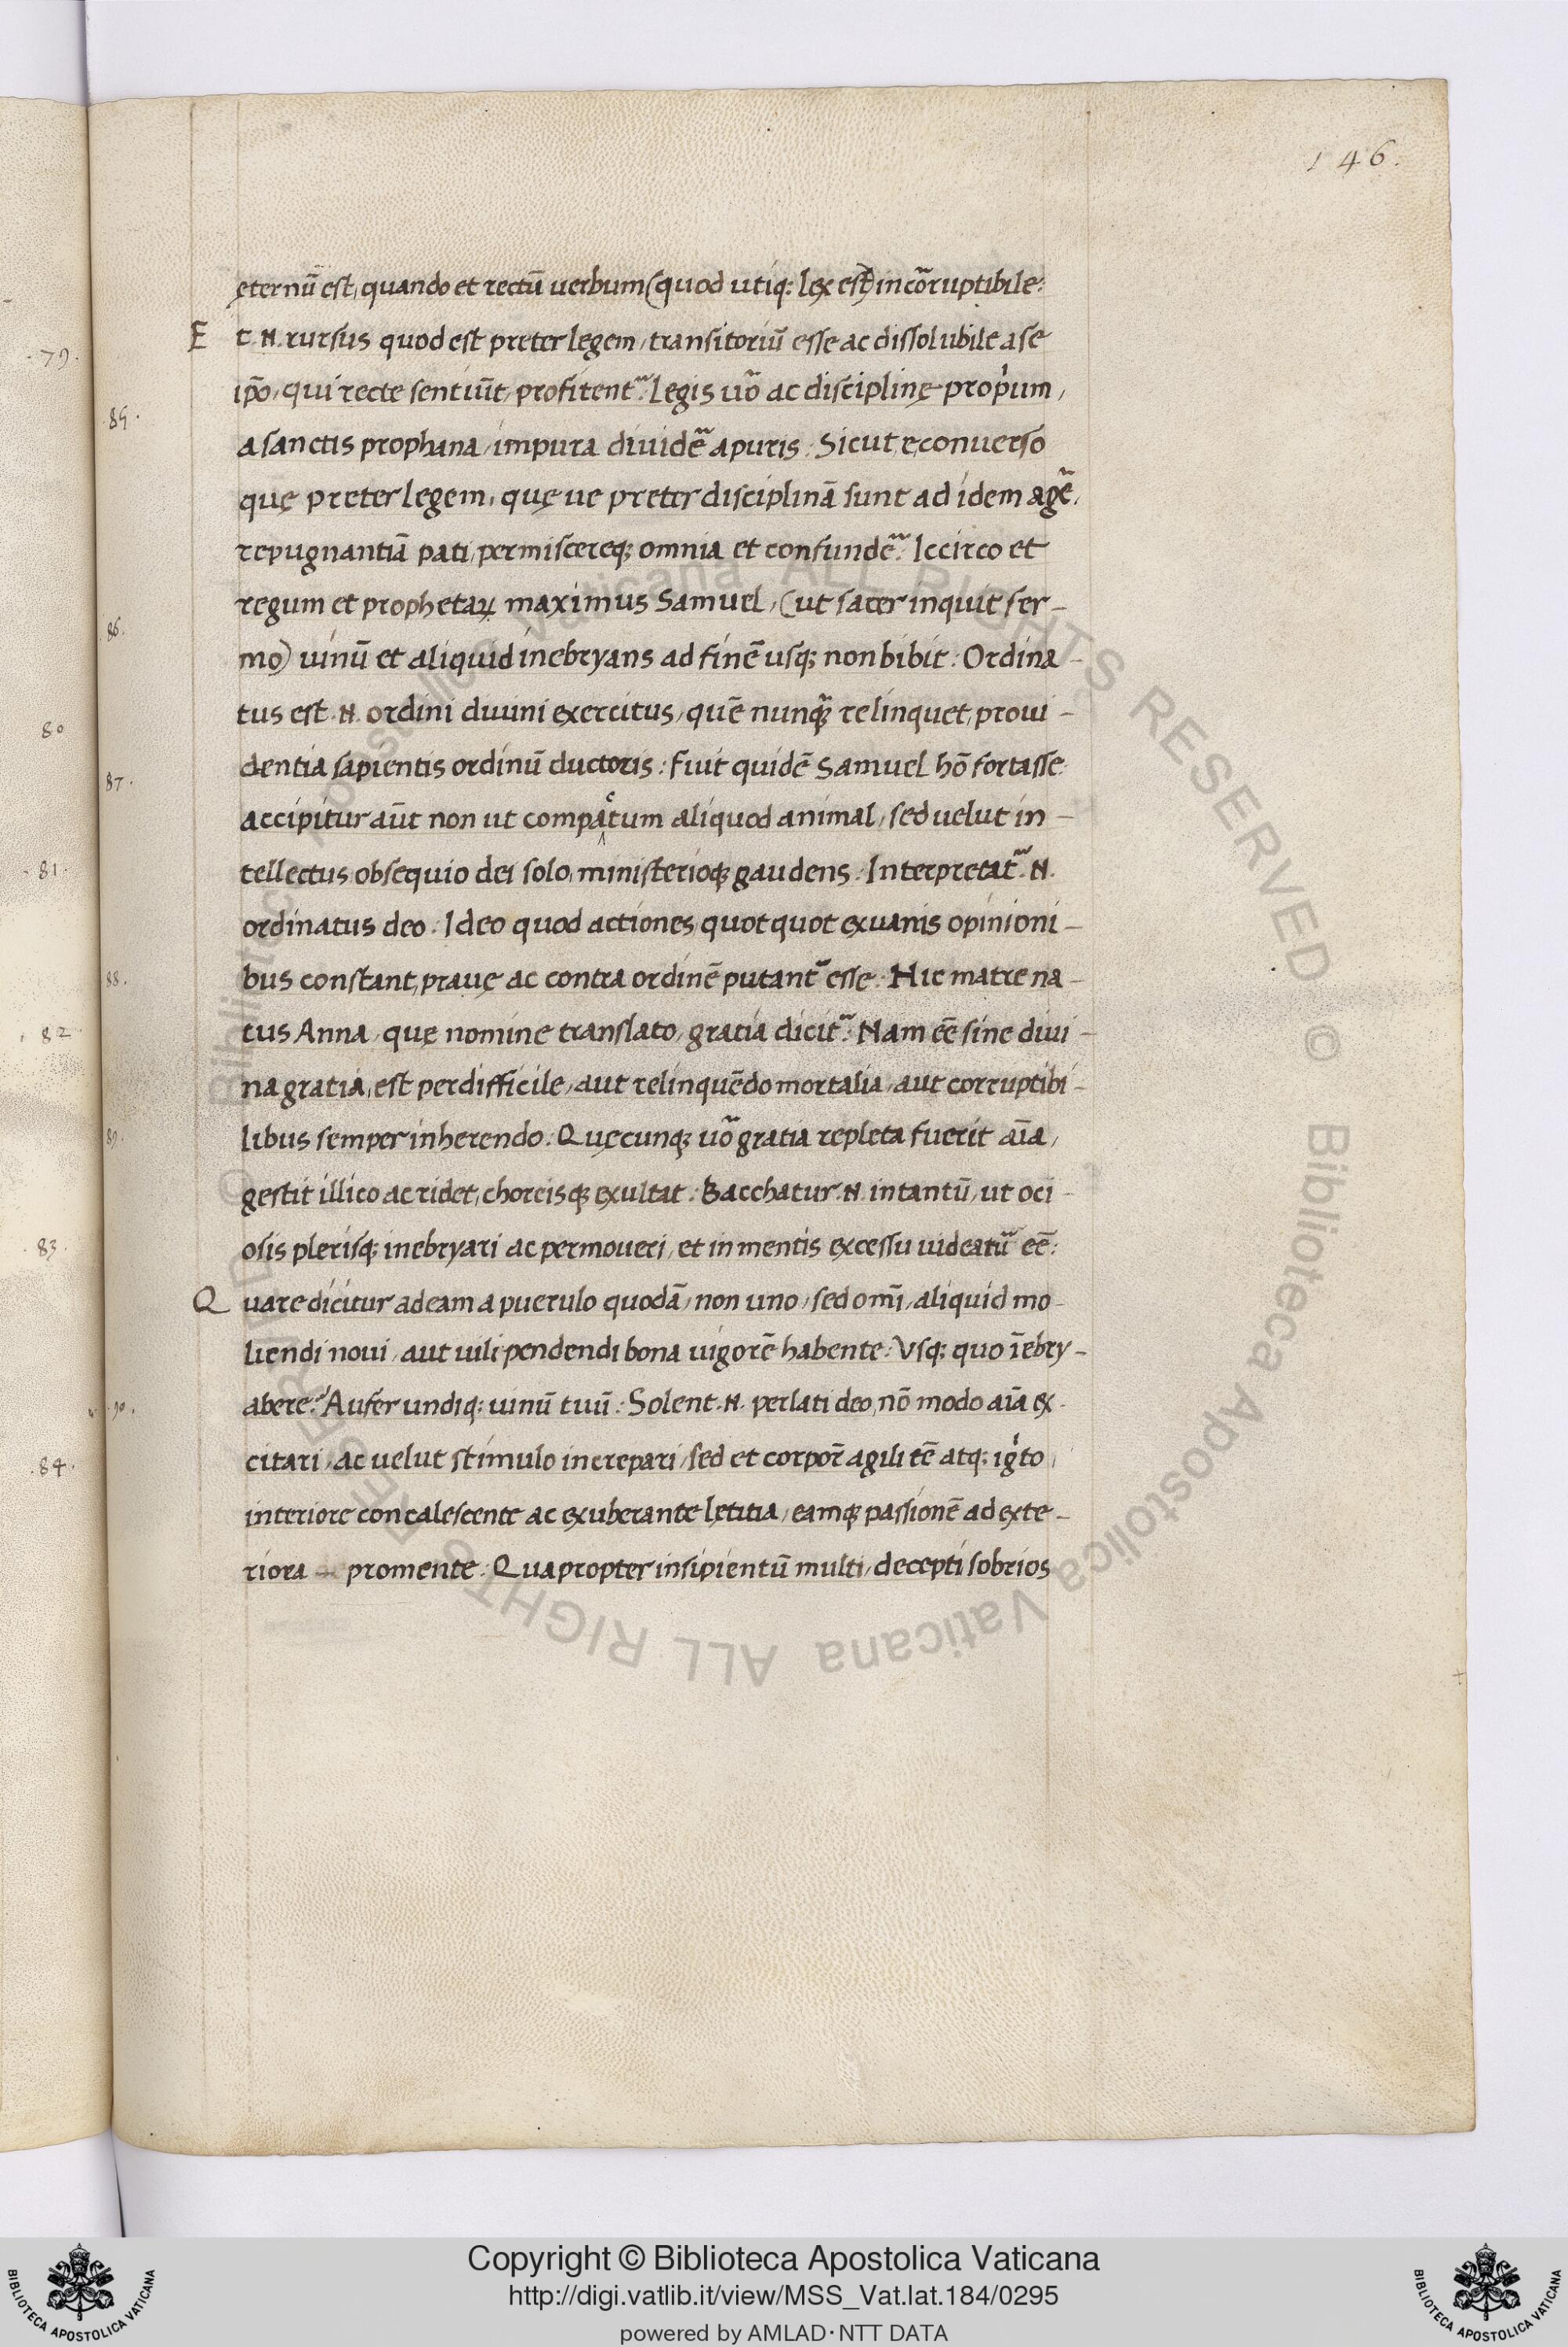 146.
ęternū est, quando et rectū uerbum (quod utiq: lex est) incõruptibile:
Et .N. rursus quod est preter legem, transitoriū esse ac dissolubile a se
ip̃o, qui recte sentiũt, profitent᷑: Legis uõ ac disciplinę proṗium,
a sanctis prophana, impura diuidẽ a puris: Sicut e conuerso
quę preter legem, quę ue preter disciplinã sunt ad idem agẽ,
repugnantiã pati, permiscereq; omnia et confundẽ: Iccirco et
regum et prophetaꝝ maximus Samuel, (ut sacer inquit ser-
mo) uinū et aliquid inebryans ad finẽ usq; non bibit: Ordina-
tus est .N. ordini diuini exercitus, quẽ nunq̃ relinquet, proui-
dentia sapientis ordinū ductoris: Fuit quidẽ Samuel hõ fortasse:
accipitur aũt non ut compactum aliquod animal, sed uelut in-
tellectus, obsequio dei solo, ministerioq; gaudens: Interpretat᷑ .N.
ordinatus deo: Ideo quod actiones, quotquot ex uanis opinioni-
bus constant, prauę ac contra ordinẽ putant᷑ esse: Hic matre na-
tus Anna, quę nomine translato, gratia dicit᷑: Nam eẽ sine diui-
na gratia, est perdifficile, aut relinquẽdo mortalia, aut corruptibi-
libus semper inherendo: Quęcunq; uõ gratia repleta fuerit aĩa,
gestit illico ac ridet, choreisq; exultat: Bacchatur .N. intantū, ut oci-
osis plerisq; inebryari ac permoueri, et in mentis excessu uideatu᷑ eẽ:
Quare dicitur ad eam a puerulo quodã, non uno, sed om̃i, aliquid mo-
liendi noui, aut uilipendendi bona uigorẽ habente: Vsq; quo ĩebry-
abere? Aufer undiq: uinū tuū: Solent .N. perlati deo, nõ modo aĩa ex-
citari, ac uelut stimulo increpari, sed et corpor̃ agili tẽ atq: ig̓to,
interiore concalescente ac exuberante lętitia, eamq; passionẽ ad exte-
riora promente: Quapropter insipientū multi, decepti sobrios
79.
80
81.
82
83.
84.
85.
86.
87.
88.
89.
90.
Copyright © Biblioteca Apostolica Vaticana
http://digi.vatlib.it/view/MSS_Vat.lat.184/0295
powered by AMLAD·NTT DATA
BIBLIOTECA APOSTOLICA VATICANA
BIBLIOTECA APOSTOLICA VATICANA
© Biblioteca Apostolica Vaticana ALL RIGHTS RESERVED © Biblioteca Apostolica Vaticana ALL RIGHTS RESERVED